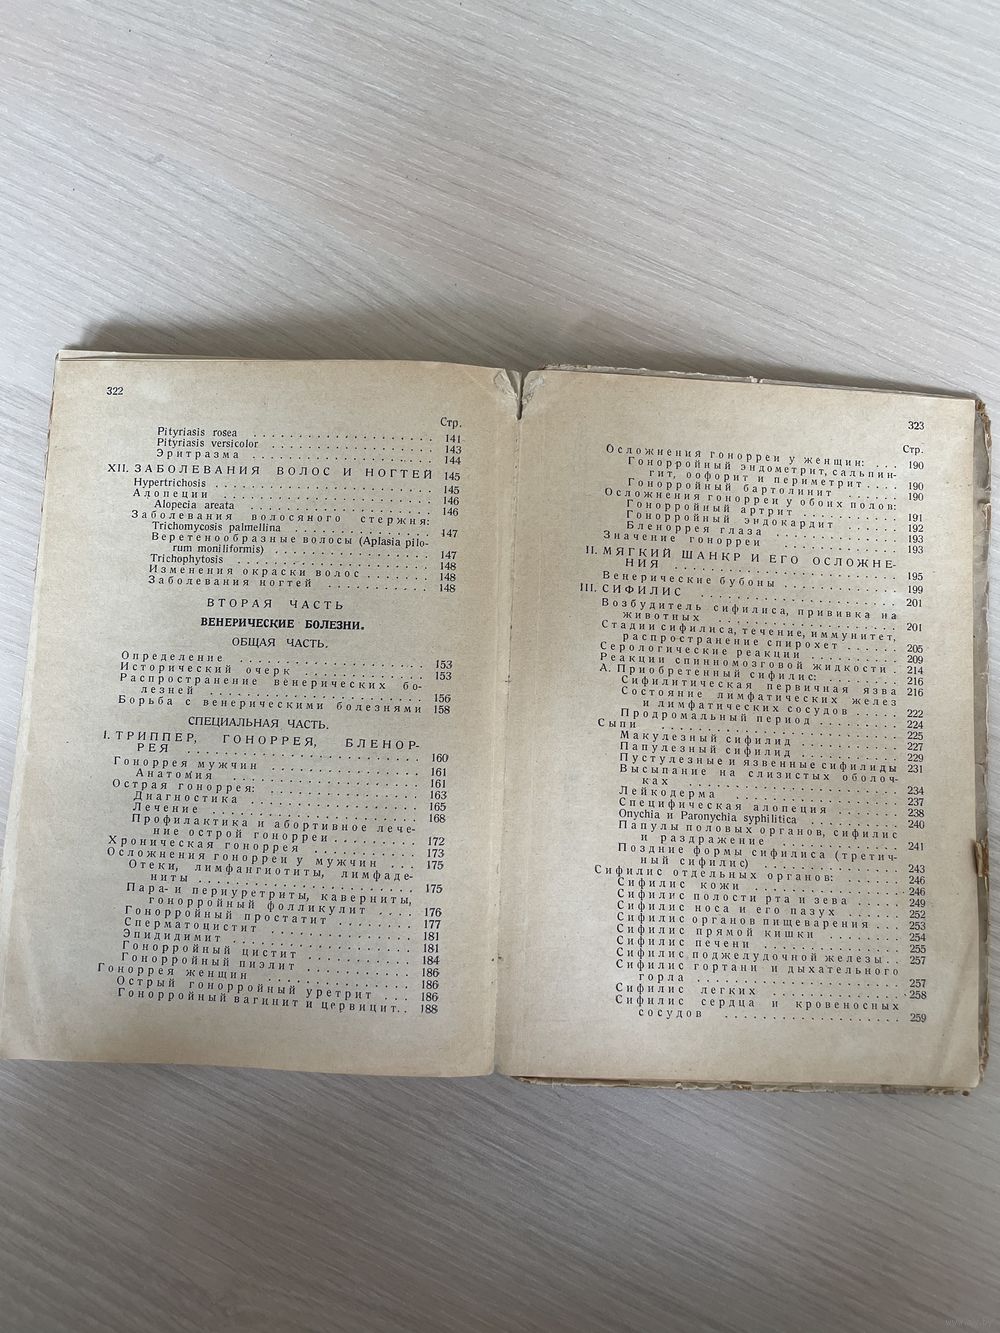 322
Стр.
Pityriasis rosea . . . . . . . . . . . . . . . . . . . 141
Pityriasis versicolor . . . . . . . . . . . . . . . . . 143
Эритразма . . . . . . . . . . . . . . . . . . 144
XII. ЗАБОЛЕВАНИЯ ВОЛОС И НОГТЕЙ 145
Hypertrichosis . . . . . . . . . . . . . . . . . . . . 145
Алопеции . . . . . . . . . . . . . . . . . . . . 146
Alopecia areata . . . . . . . . . . . . . . . . . . 146
Заболевания волосяного стержня:
Trichomycosis palmellina . . . . . . . . . . . . . . 147
Веретенообразные волосы (Aplasia pilo-
rum moniliformis) . . . . . . . . . . . . . . . 147
Trichophytosis . . . . . . . . . . . . . . . . . . . 148
Изменения окраски волос . . . . . . . 148
Заболевания ногтей . . . . . . . . . . . 148
ВТОРАЯ ЧАСТЬ
ВЕНЕРИЧЕСКИЕ БОЛЕЗНИ.
ОБЩАЯ ЧАСТЬ.
Определение . . . . . . . . . . . . . . . . . 153
Исторический очерк . . . . . . . . . . . . 153
Распространение венерических бо-
лезней . . . . . . . . . . . . . . . . . . . 156
Борьба с венерическими болезнями 158
СПЕЦИАЛЬНАЯ ЧАСТЬ.
I. ТРИППЕР, ГОНОРРЕЯ, БЛЕНОР-
РЕЯ . . . . . . . . . . . . . . . . . . . . . 160
Гоноррея мужчин . . . . . . . . . . . . . . 161
Анатомия . . . . . . . . . . . . . . . . . . 161
Острая гоноррея: . . . . . . . . . . . . . . 163
Диагностика . . . . . . . . . . . . . . . . 165
Лечение . . . . . . . . . . . . . . . . . . . 168
Профилактика и абортивное лече-
ние острой гонорреи . . . . . . . . . 172
Хроническая гоноррея . . . . . . . . . . . 173
Осложнения гонорреи у мужчин . . . 175
Отеки, лимфангиотиты, лимфаде-
ниты . . . . . . . . . . . . . . . . . . . 175
Пара- и периуретриты, каверниты,
гонорройный фолликулит . . . . 176
Гонорройный простатит . . . . . . . . 177
Сперматоцистит . . . . . . . . . . . . . . 181
Эпидидимит . . . . . . . . . . . . . . . . 181
Гонорройный цистит . . . . . . . . . . 184
Гонорройный пиэлит . . . . . . . . . . 186
Гоноррея женщин . . . . . . . . . . . . . . 186
Острый гонорройный уретрит . . . 186
Гонорройный вагинит и цервицит. . 188
323
Стр.
Осложнения гонорреи у женщин: . . . 190
Гонорройный эндометрит, сальпин-
гит, оофорит и периметрит . . . . 190
Гонорройный бартолинит . . . . . . 190
Осложнения гонорреи у обоих полов:
Гонорройный артрит . . . . . . . . . 191
Гонорройный эндокардит . . . . . . 192
Бленоррея глаза . . . . . . . . . . . . 193
Значение гонорреи . . . . . . . . . . . . 193
II. МЯГКИЙ ШАНКР И ЕГО ОСЛОЖНЕ-
НИЯ . . . . . . . . . . . . . . . . . . . . 195
Венерические бубоны . . . . . . . . . . 199
III. СИФИЛИС . . . . . . . . . . . . . . . . . 201
Возбудитель сифилиса, прививка на
животных . . . . . . . . . . . . . . . . 201
Стадии сифилиса, течение, иммунитет,
распространение спирохет . . . . . . 205
Серологические реакции . . . . . . . . 209
Реакции спинномозговой жидкости . 214
А. Приобретенный сифилис: . . . . . . 216
Сифилитическая первичная язва 216
Состояние лимфатических желез
и лимфатических сосудов . . . . . 222
Продромальный период . . . . . . . . 224
Сыпи . . . . . . . . . . . . . . . . . . . . 225
Макулезный сифилид . . . . . . . . . 227
Папулезный сифилид . . . . . . . . . 229
Пустулезные и язвенные сифилиды 231
Высыпание на слизистых оболоч-
ках . . . . . . . . . . . . . . . . . . . 234
Лейкодерма . . . . . . . . . . . . . . . 237
Специфическая алопеция . . . . . . 238
Onychia и Paronychia syphilitica . . . . . . . 240
Папулы половых органов, сифилис
и раздражение . . . . . . . . . . . . 241
Поздние формы сифилиса (третич-
ный сифилис) . . . . . . . . . . . . . 243
Сифилис отдельных органов: . . . . . 246
Сифилис кожи . . . . . . . . . . . . . 246
Сифилис полости рта и зева . . . . 249
Сифилис носа и его пазух . . . . . 252
Сифилис органов пищеварения . . . 253
Сифилис прямой кишки . . . . . . . 254
Сифилис печени . . . . . . . . . . . . 255
Сифилис поджелудочной железы . . 257
Сифилис гортани и дыхательного
горла . . . . . . . . . . . . . . . . . . 257
Сифилис легких . . . . . . . . . . . . 258
Сифилис сердца и кровеносных
сосудов . . . . . . . . . . . . . . . . . 259